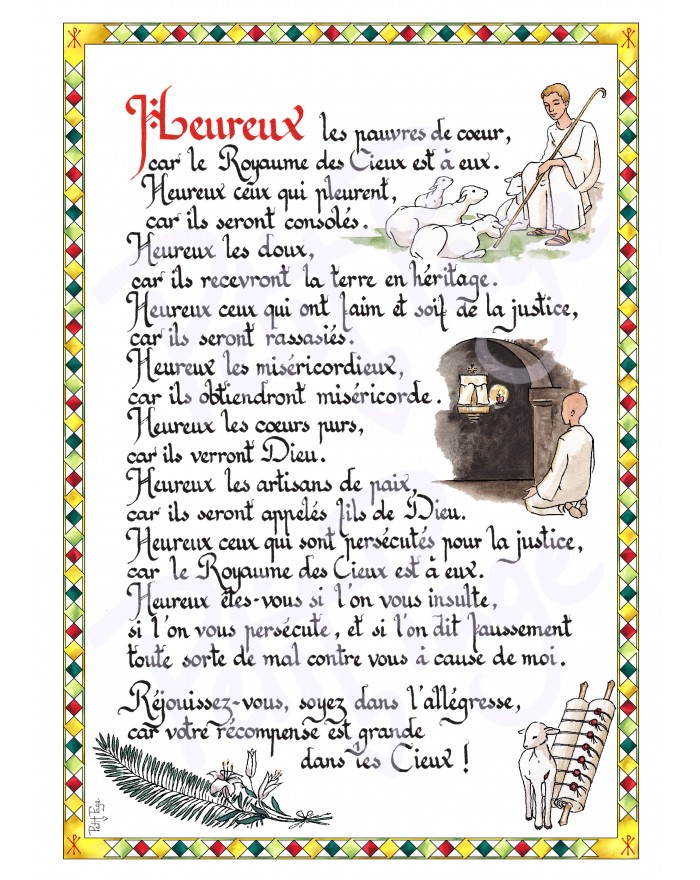 Heureux les pauvres de cœur,
car le Royaume des Cieux est à eux.
Heureux ceux qui pleurent,
car ils seront consolés.
Heureux les doux,
car ils recevront la terre en héritage.
Heureux ceux qui ont faim et soif de la justice,
car ils seront rassasiés.
Heureux les miséricordieux,
car ils obtiendront miséricorde.
Heureux les cœurs purs,
car ils verront Dieu.
Heureux les artisans de paix,
car ils seront appelés fils de Dieu.
Heureux ceux qui sont persécutés pour la justice,
car le Royaume des Cieux est à eux.
Heureux êtes-vous si l'on vous insulte,
si l'on vous persécute, et si l'on dit faussement
toute sorte de mal contre vous à cause de moi.
Réjouissez-vous, soyez dans l'allégresse,
car votre récompense est grande
dans les Cieux !
Petit Page